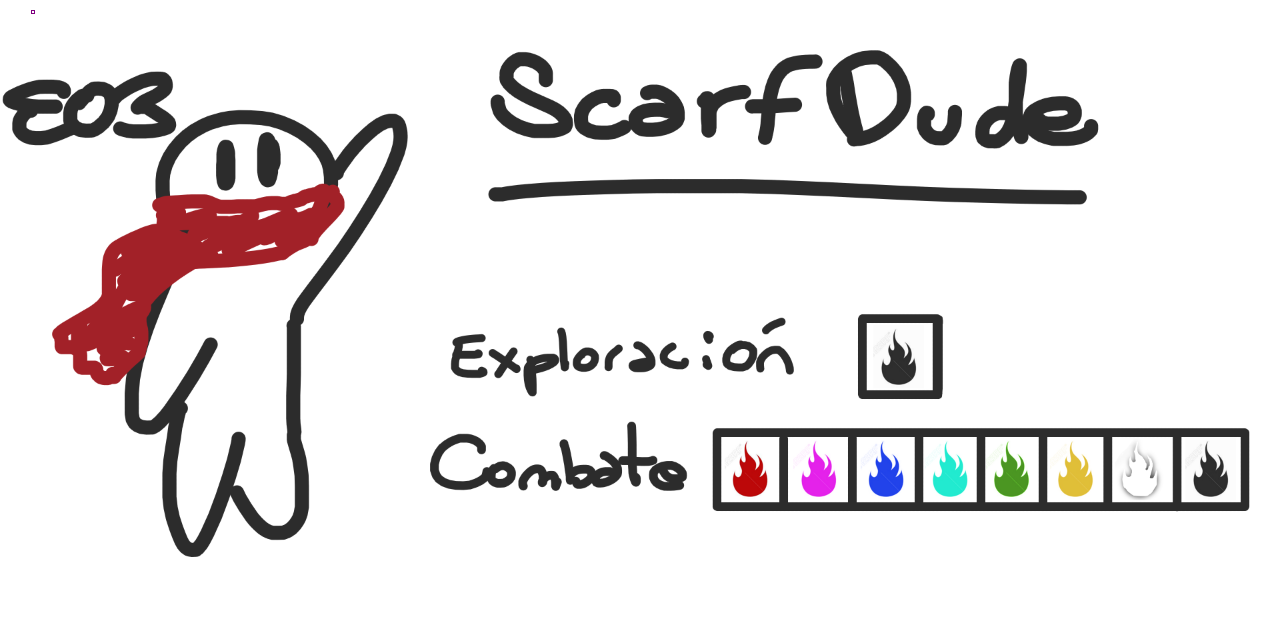 E03
ScarfDude
Exploración
Combate